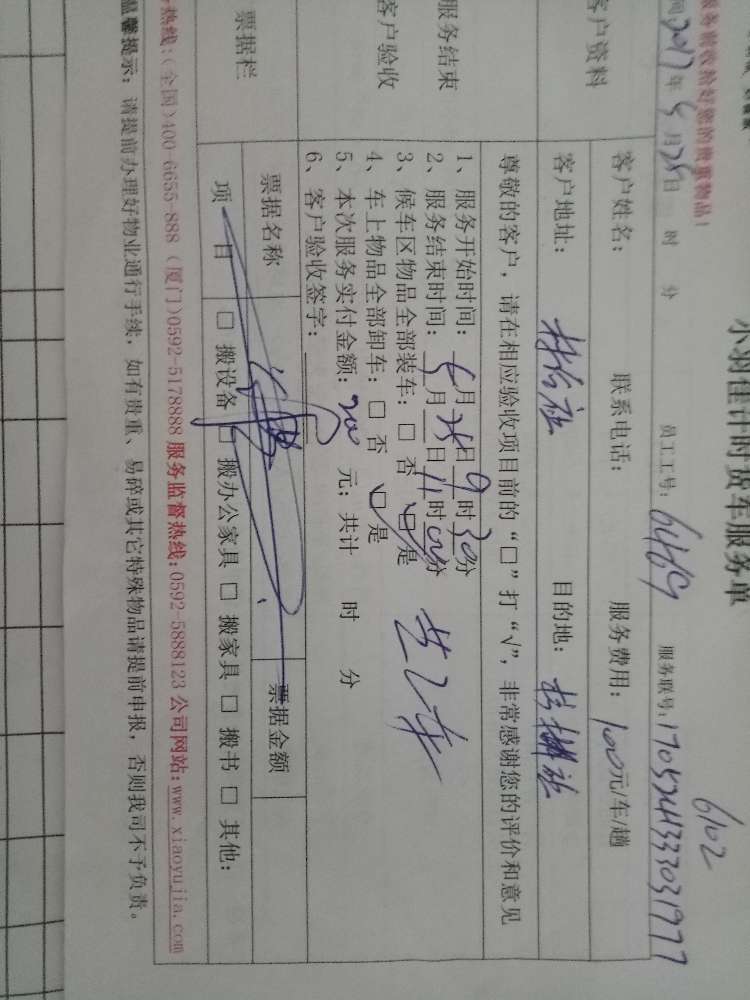 小羽佳计时货车服务单
6102
服务前收拾好您的贵重物品！
间2017年5月28日 时 分 员工工号：6469 服务联号：
客户资料
客户姓名： 联系电话： 服务费用：100元/车/趟
客户地址： 目的地：
服务结束
客户验收
尊敬的客户，请在相应验收项目前的“□”打“√”，非常感谢您的评价和意见
1、服务开始时间： 月 日9时30分
2、服务结束时间： 月 日11时00分
3、候车区物品全部装车：□ 否 □是
4、车上物品全部卸车：□ 否 □是
5、本次服务实付金额：200 元；共计 时 分
6、客户验收签字：
票据栏
票据名称 票据金额
项 目 □ 搬设备 □ 搬办公家具 □ 搬家具 □ 搬书 □ 其他：
热线：(全国)400-6655-888 (厦门)0592-5178888 服务监督热线：0592-5888123 公司网站：www.xiaoyujia.com
温馨提示：请提前办理好物业通行手续，如有贵重、易碎或其它特殊物品请提前申报，否则我司不予负责。